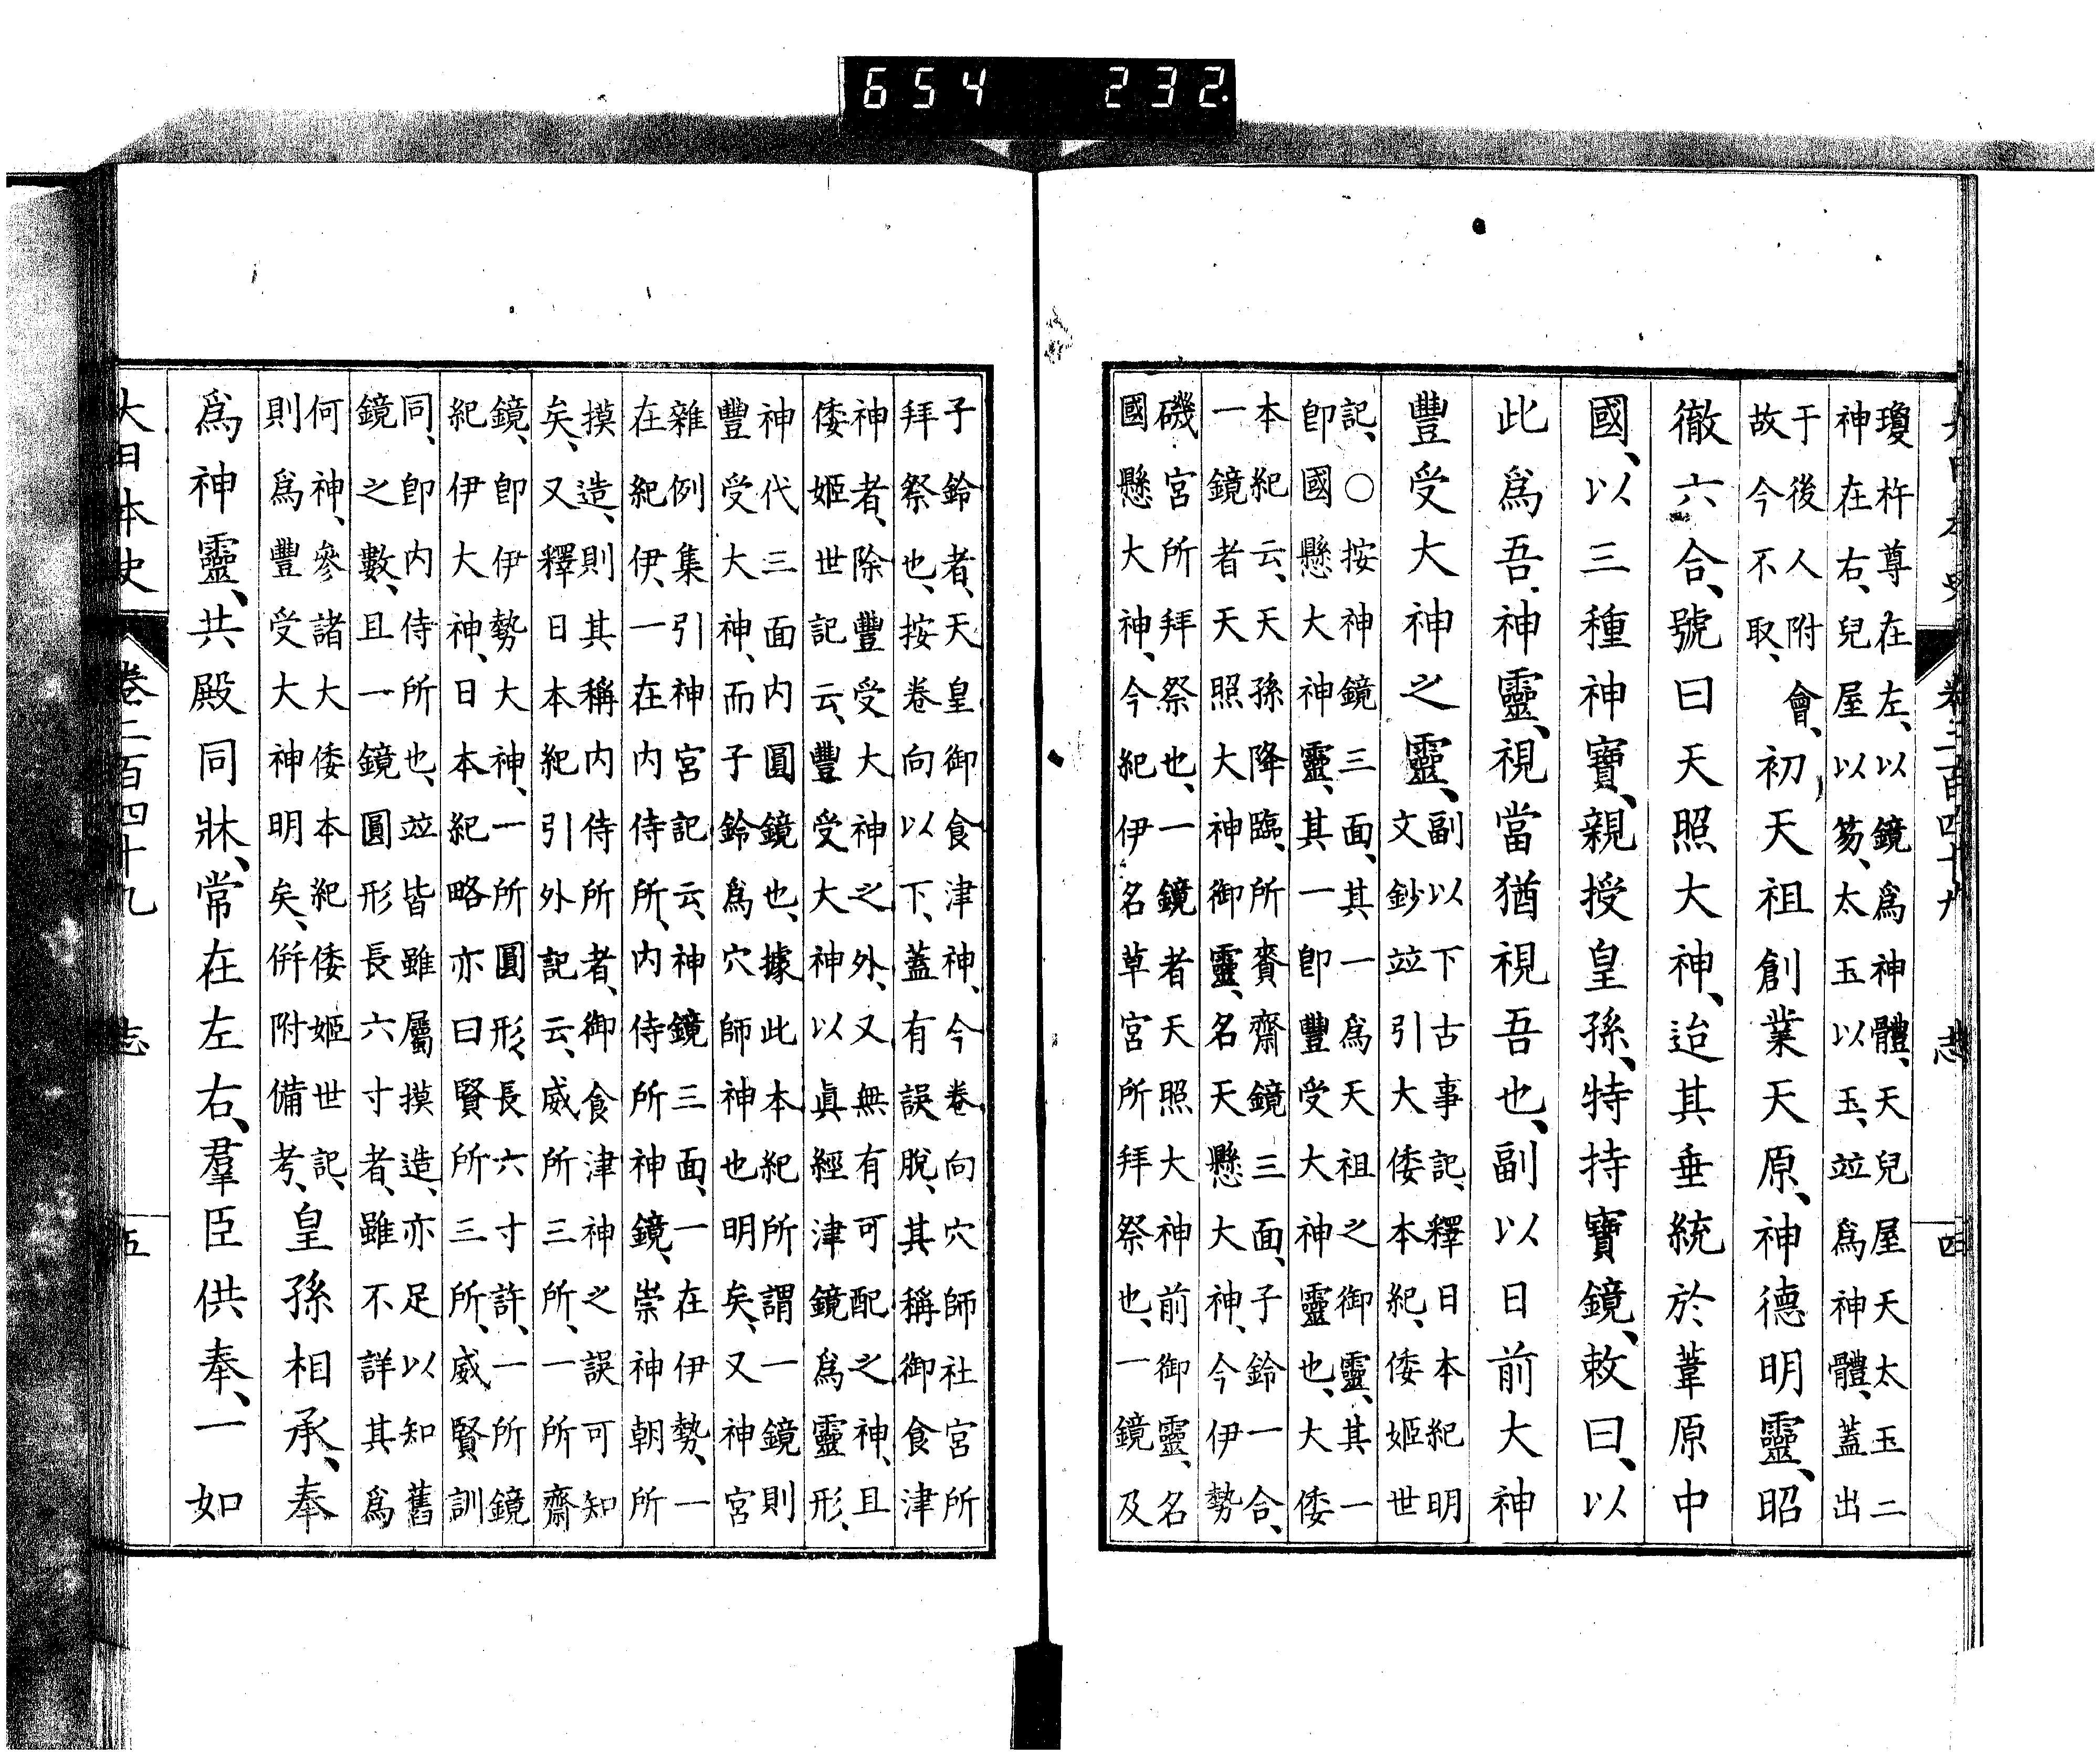 大日本史 卷二百四十九 志 四
瓊杵尊在左、以鏡爲神體、天兒屋天太玉二
神在右、兒屋以笏、太玉以玉、竝爲神體、蓋出
于後人附會、
故今不取、
初天祖創業天原、神德明靈、昭
徹六合、號曰天照大神、迨其垂統於葦原中
國、以三種神寶、親授皇孫、特持寶鏡、敕曰、以
此爲吾神靈、視當猶視吾也、副以日前大神
豐受大神之靈、
副以下古事記、釋日本紀明
文鈔竝引大倭本紀、倭姬世
記、○按神鏡三面、其一爲天祖之御靈、其一
卽國懸大神靈、其一卽豐受大神靈也、大倭
本紀云、天孫降臨、所賚齋鏡三面、子鈴一合、
一鏡者天照大神御靈、名天懸大神、今伊勢
磯宮所拜祭也、一鏡者天照大神前御靈、名
國懸大神、今紀伊名草宮所拜祭也、一鏡及
子鈴者、天皇御食津神、今卷向穴師社宮所
拜祭也、按卷向以下、蓋有誤脫、其稱御食津
神者、除豐受大神之外、又無有可配之神、且
倭姬世記云、豐受大神以眞經津鏡爲靈形、
神代三面內圓鏡也、據此本紀所謂一鏡則
豐受大神、而子鈴爲穴師神也明矣、又神宮
雜例集引神宮記云、神鏡三面、一在伊勢、一
在紀伊、一在內侍所、內侍所神鏡、崇神朝所
摸造、則其稱內侍所者、御食津神之誤可知
矣、又釋日本紀引外記云、威所三所、一所齋
鏡、卽伊勢大神、一所圓形、長六寸許、一所鏡
紀伊大神、日本紀略亦曰賢所三所、威賢訓
同、卽內侍所也、竝皆雖屬摸造、亦足以知舊
鏡之數、且一鏡圓形長六寸者、雖不詳其爲
何神、參諸大倭本紀倭姬世記、
則爲豐受大神明矣、倂附備考、
皇孫相承、奉
爲神靈、共殿同牀、常在左右、羣臣供奉、一如
大日本史 卷二百四十九 志 五
654 232.